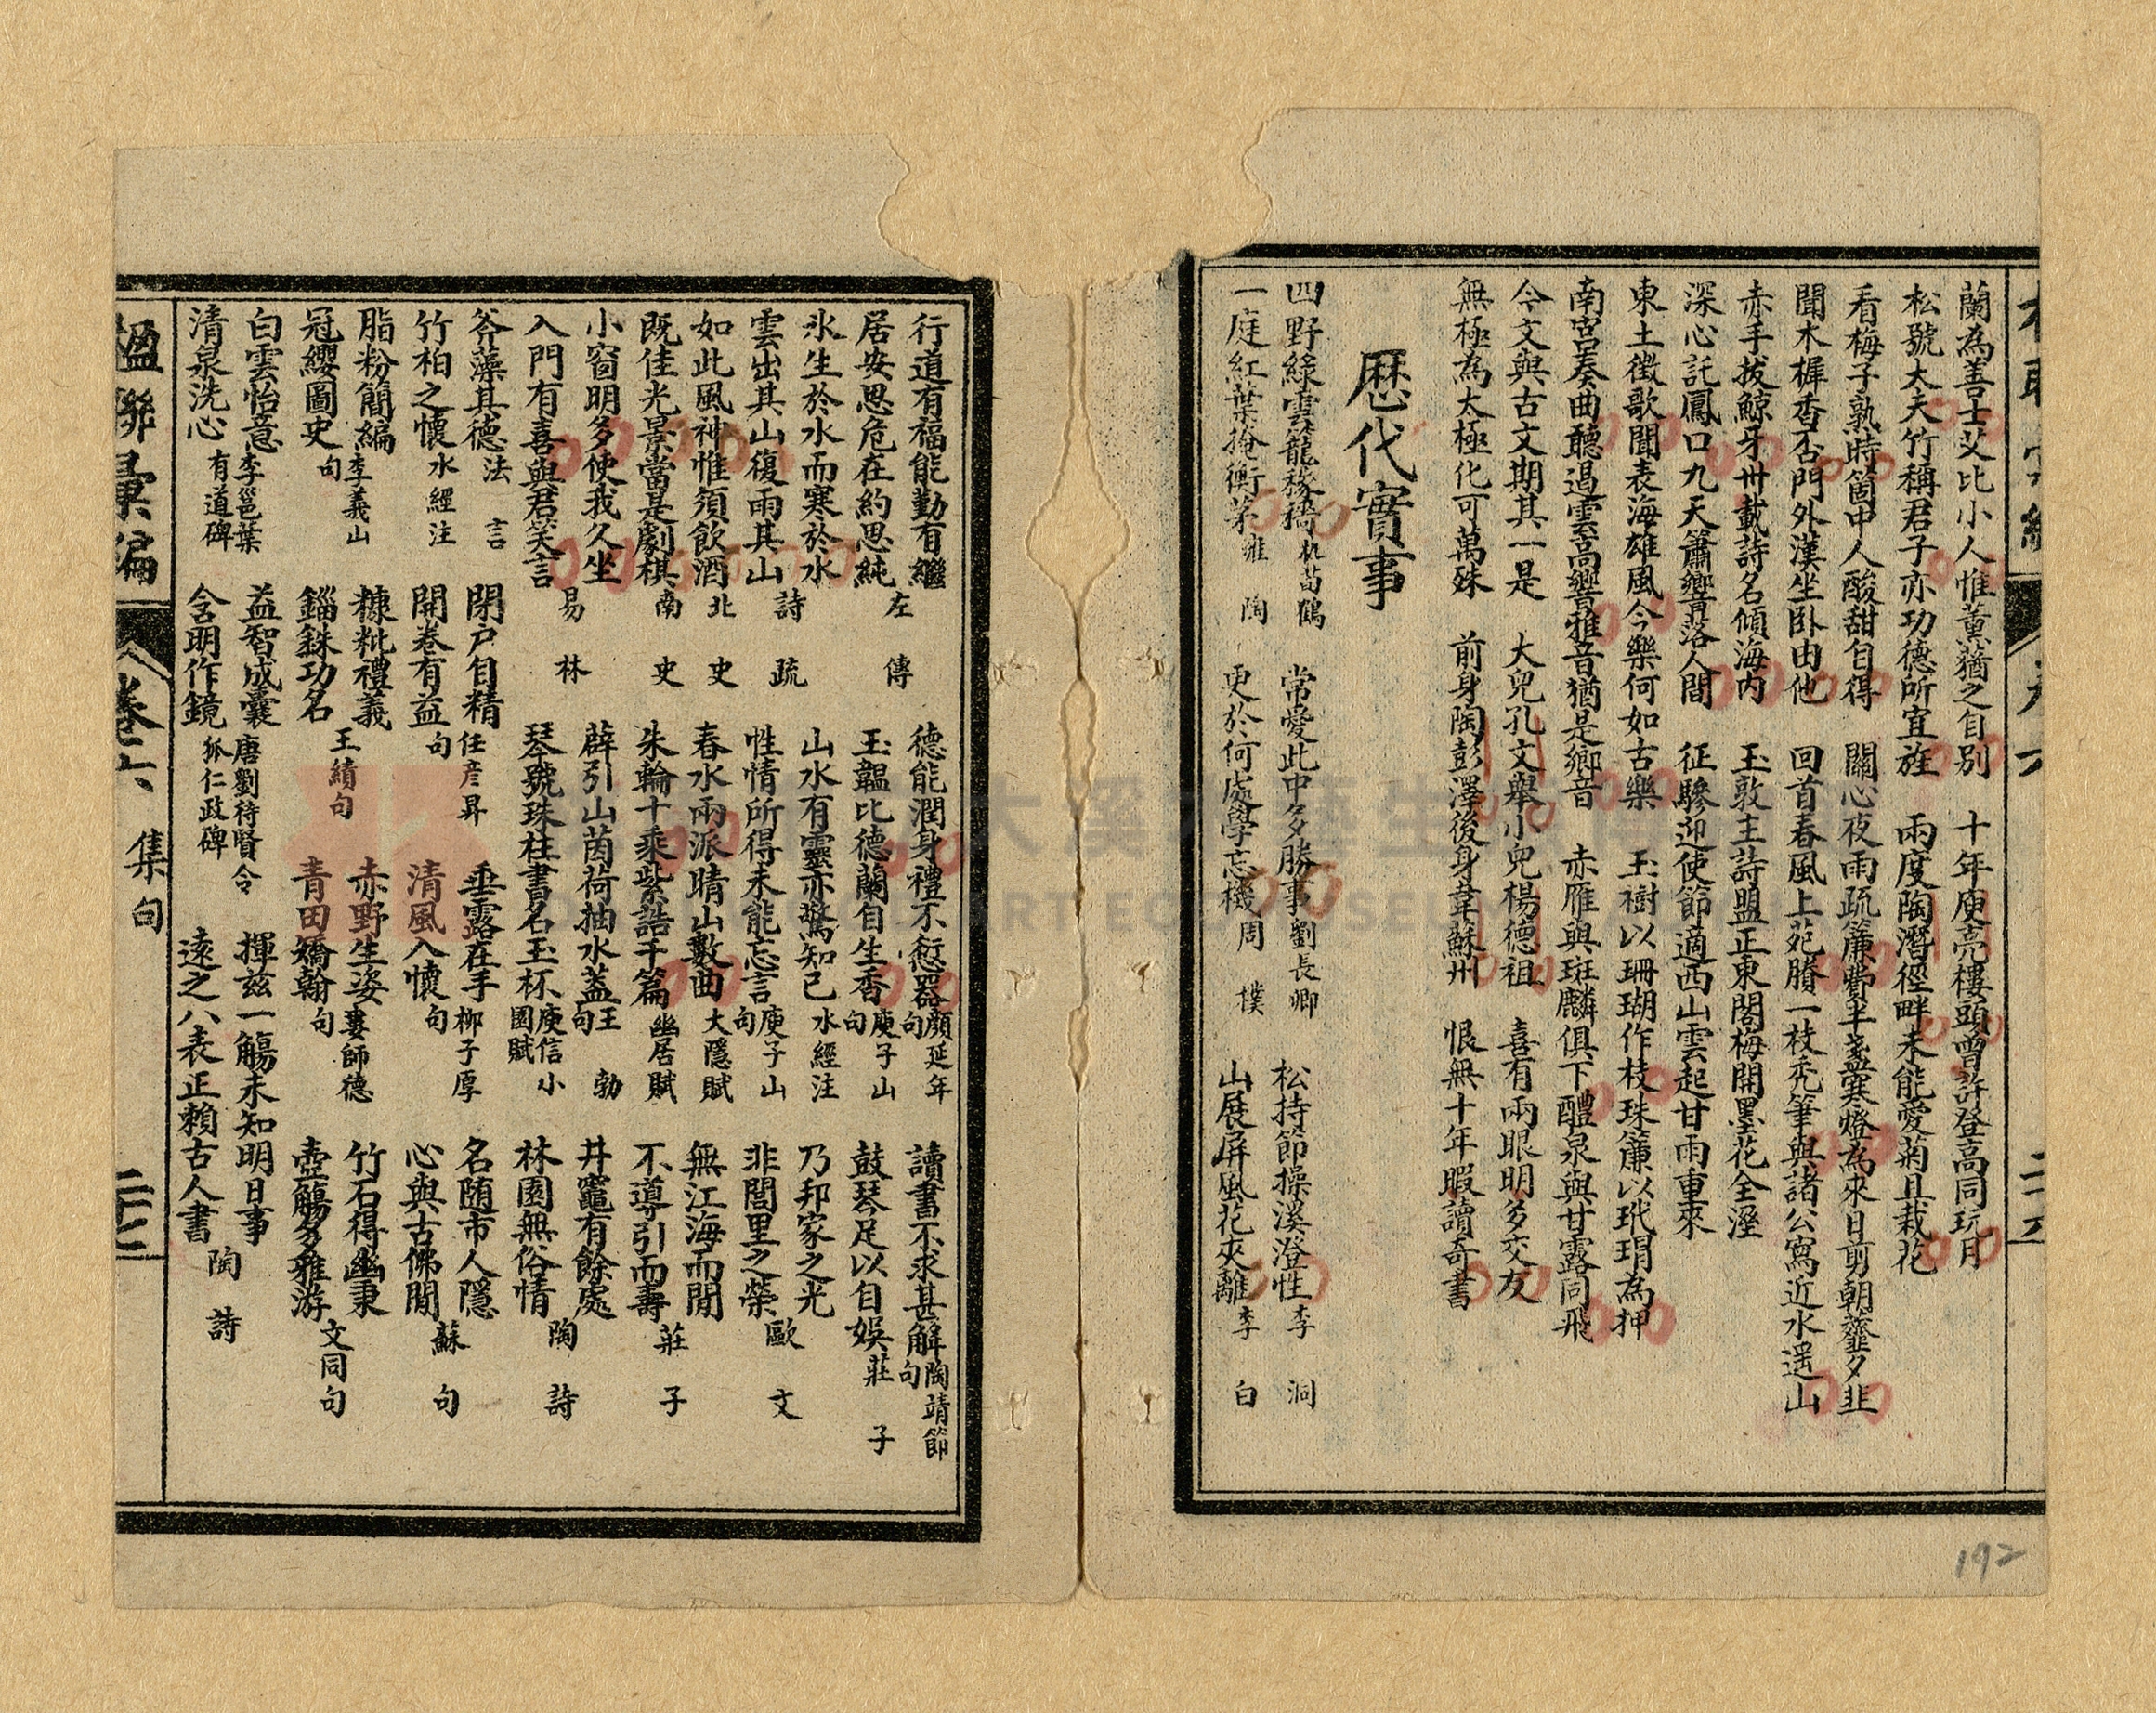 蘭為善士艾比小人惟薰蕕之自別　十年庾亮樓頭曾許登高同玩月
松號大夫竹稱君子亦功德所宜旌　兩度陶潛徑畔未能愛菊且栽花
看梅子熟時箇中人酸甜自得　關心夜雨疏簾費半盞寒燈為來日剪朝虀夕韭
聞木樨香否門外漢坐卧由他　回首春風上苑賸一枝禿筆與諸公寫近水遥山
赤手拔鯨牙卅載詩名傾海内　玉敦主詩盟正東閣梅開墨花全溼
深心託鳳口九天簫響落人間　征驂迎使節適西山雲起甘雨重來
東土徵歌聞表海雄風今樂何如古樂　玉樹以珊瑚作枝珠簾以玳瑁為押
南宮奏曲聽遏雲高響雅音猶是鄉音　赤雁與斑麟俱下醴泉與甘露同飛
今文與古文期其一是　大兒孔文舉小兒楊德祖　喜有兩眼明多交友
無極為太極化可萬殊　前身陶彭澤後身韋蘇州　恨無十年暇讀奇書
歷代實事
四野綠雲籠稼穡杜荀鶴　常愛此中多勝事劉長卿　松持節操溪澄性李洞
一庭紅葉掩衡茅雍陶　更於何處學忘機周樸　山展屏風花夾籬李白
卷六
192
行道有福能勤有繼　德能潤身禮不愆器顏延年句　讀書不求甚解陶靖節句
居安思危在約思純左傳　玉韞比德蘭自生香庾子山句　鼓琴足以自娛莊子
氷生於水而寒於水　山水有靈亦驚知己水經注　乃邦家之光
雲出其山復雨其山詩疏　性情所得未能忘言庾子山句　非閭里之榮歐文
如此風神惟須飲酒北史　春水兩派晴山數曲大隱賦　無江海而閒
既佳光景當是劇棋南史　朱輪十乘紫誥千篇幽居賦　不導引而壽莊子
小窗明多使我久坐　薜引山茵荷抽水蓋王勃句　井竈有餘處
入門有喜與君笑言易林　琴號珠柱書名玉杯庾信小園賦　林園無俗情陶詩
斧藻其德法言　閉戸自精任彦昇　垂露在手柳子厚　名随市人隱
竹柏之懷水經注　開卷有益句　清風入懷句　心與古佛閒蘇句
脂粉簡編李義山　糠粃禮義　赤野生姿婁師德　竹石得幽秉
冠纓圖史句　錙銖功名王績句　青田矯翰句　壺觴多雅游文同句
白雲怡意李邕葉　益智成囊唐劉待賢令　揮茲一觴未知明日事
清泉洗心有道碑　含明作鏡狐仁政碑　遠之八表正賴古人書陶詩
楹聯彙編　卷六　集句　二十七